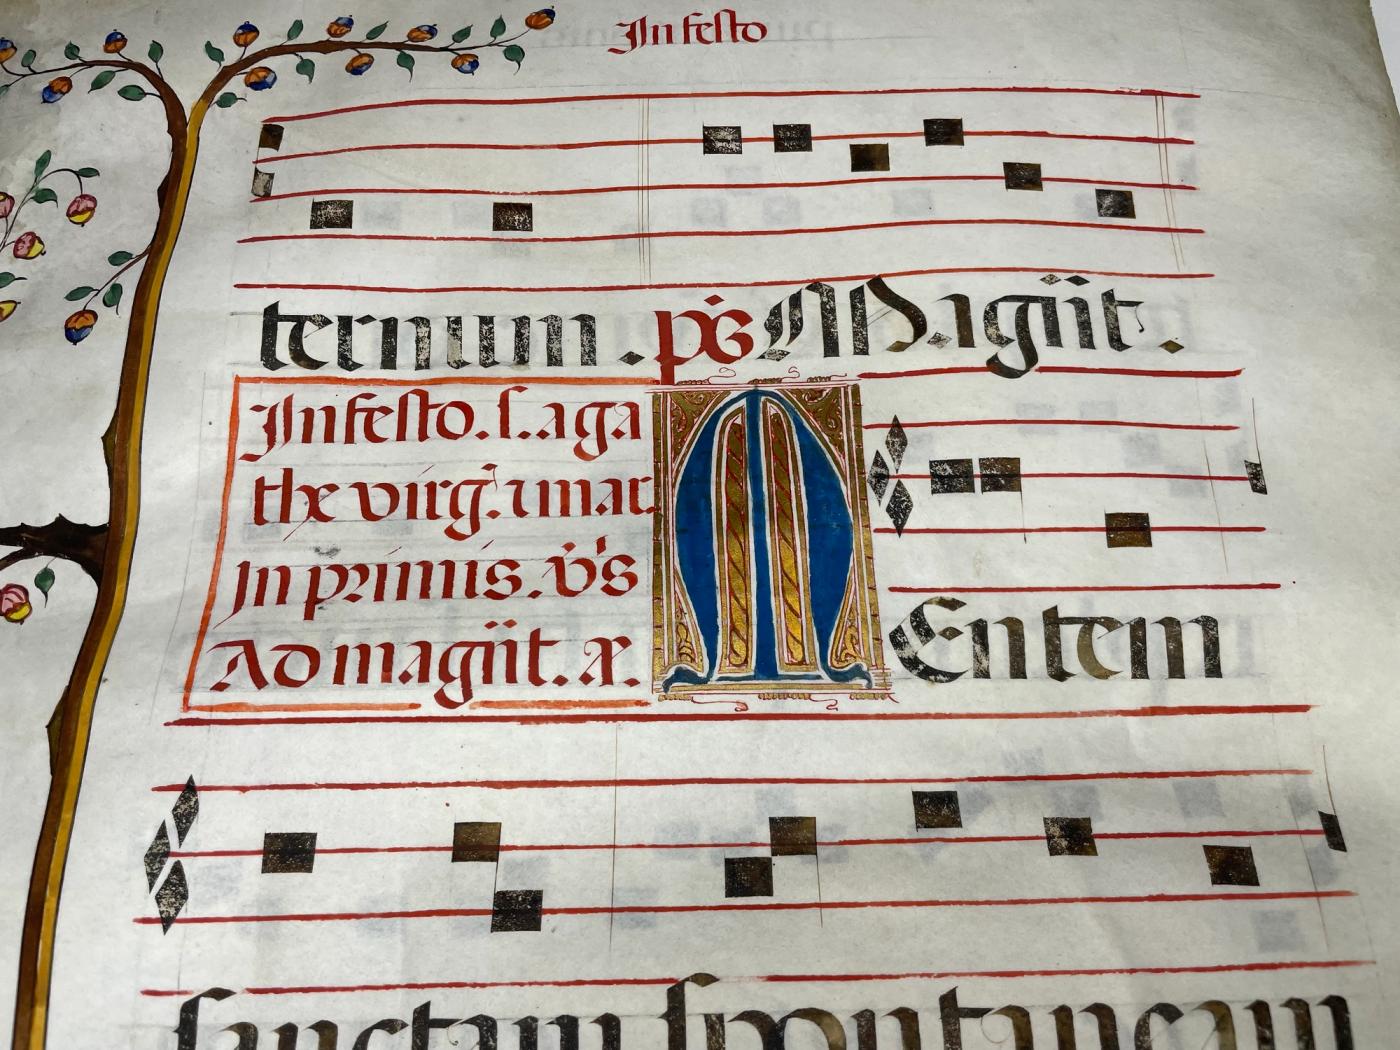 In festo
ternum. ps Magñit.
In festo. s. aga
thæ virg. ⁊ mar.
In primis. vs
Ad magñit. æ.
MEntem
sanctam spontaneam